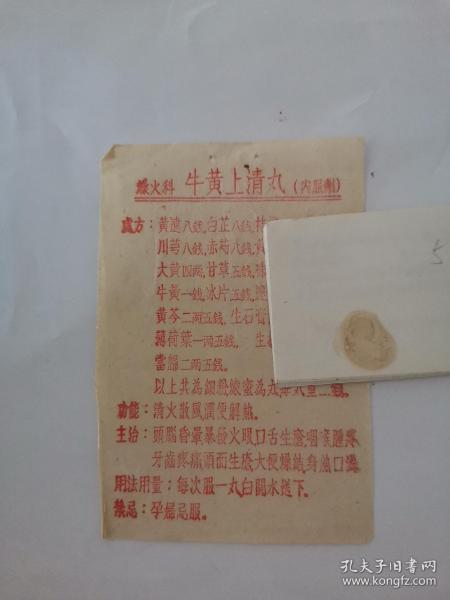 燥火科 牛黄上清丸（内服剂）
處方：黄連八錢，白芷八錢，桂
川芎八錢，赤芍八錢，
大黄四兩，甘草五錢，
牛黄一錢，冰片五錢，連
黄芩二兩五錢，生石膏
薄荷葉一兩五錢，生
當歸二兩五錢。
以上共為細粉煉蜜為丸每丸重二錢。
功能：清火散風潤便解熱。
主治：頭腦昏暈暴發火眼，口舌生瘡，咽喉腫疼
牙齒疼痛頭面生瘡大便燥結，身熱口渴
用法用量：每次服一丸白開水送下。
禁忌：孕婦忌服。
5
孔夫子旧书网
www.kongfz.com